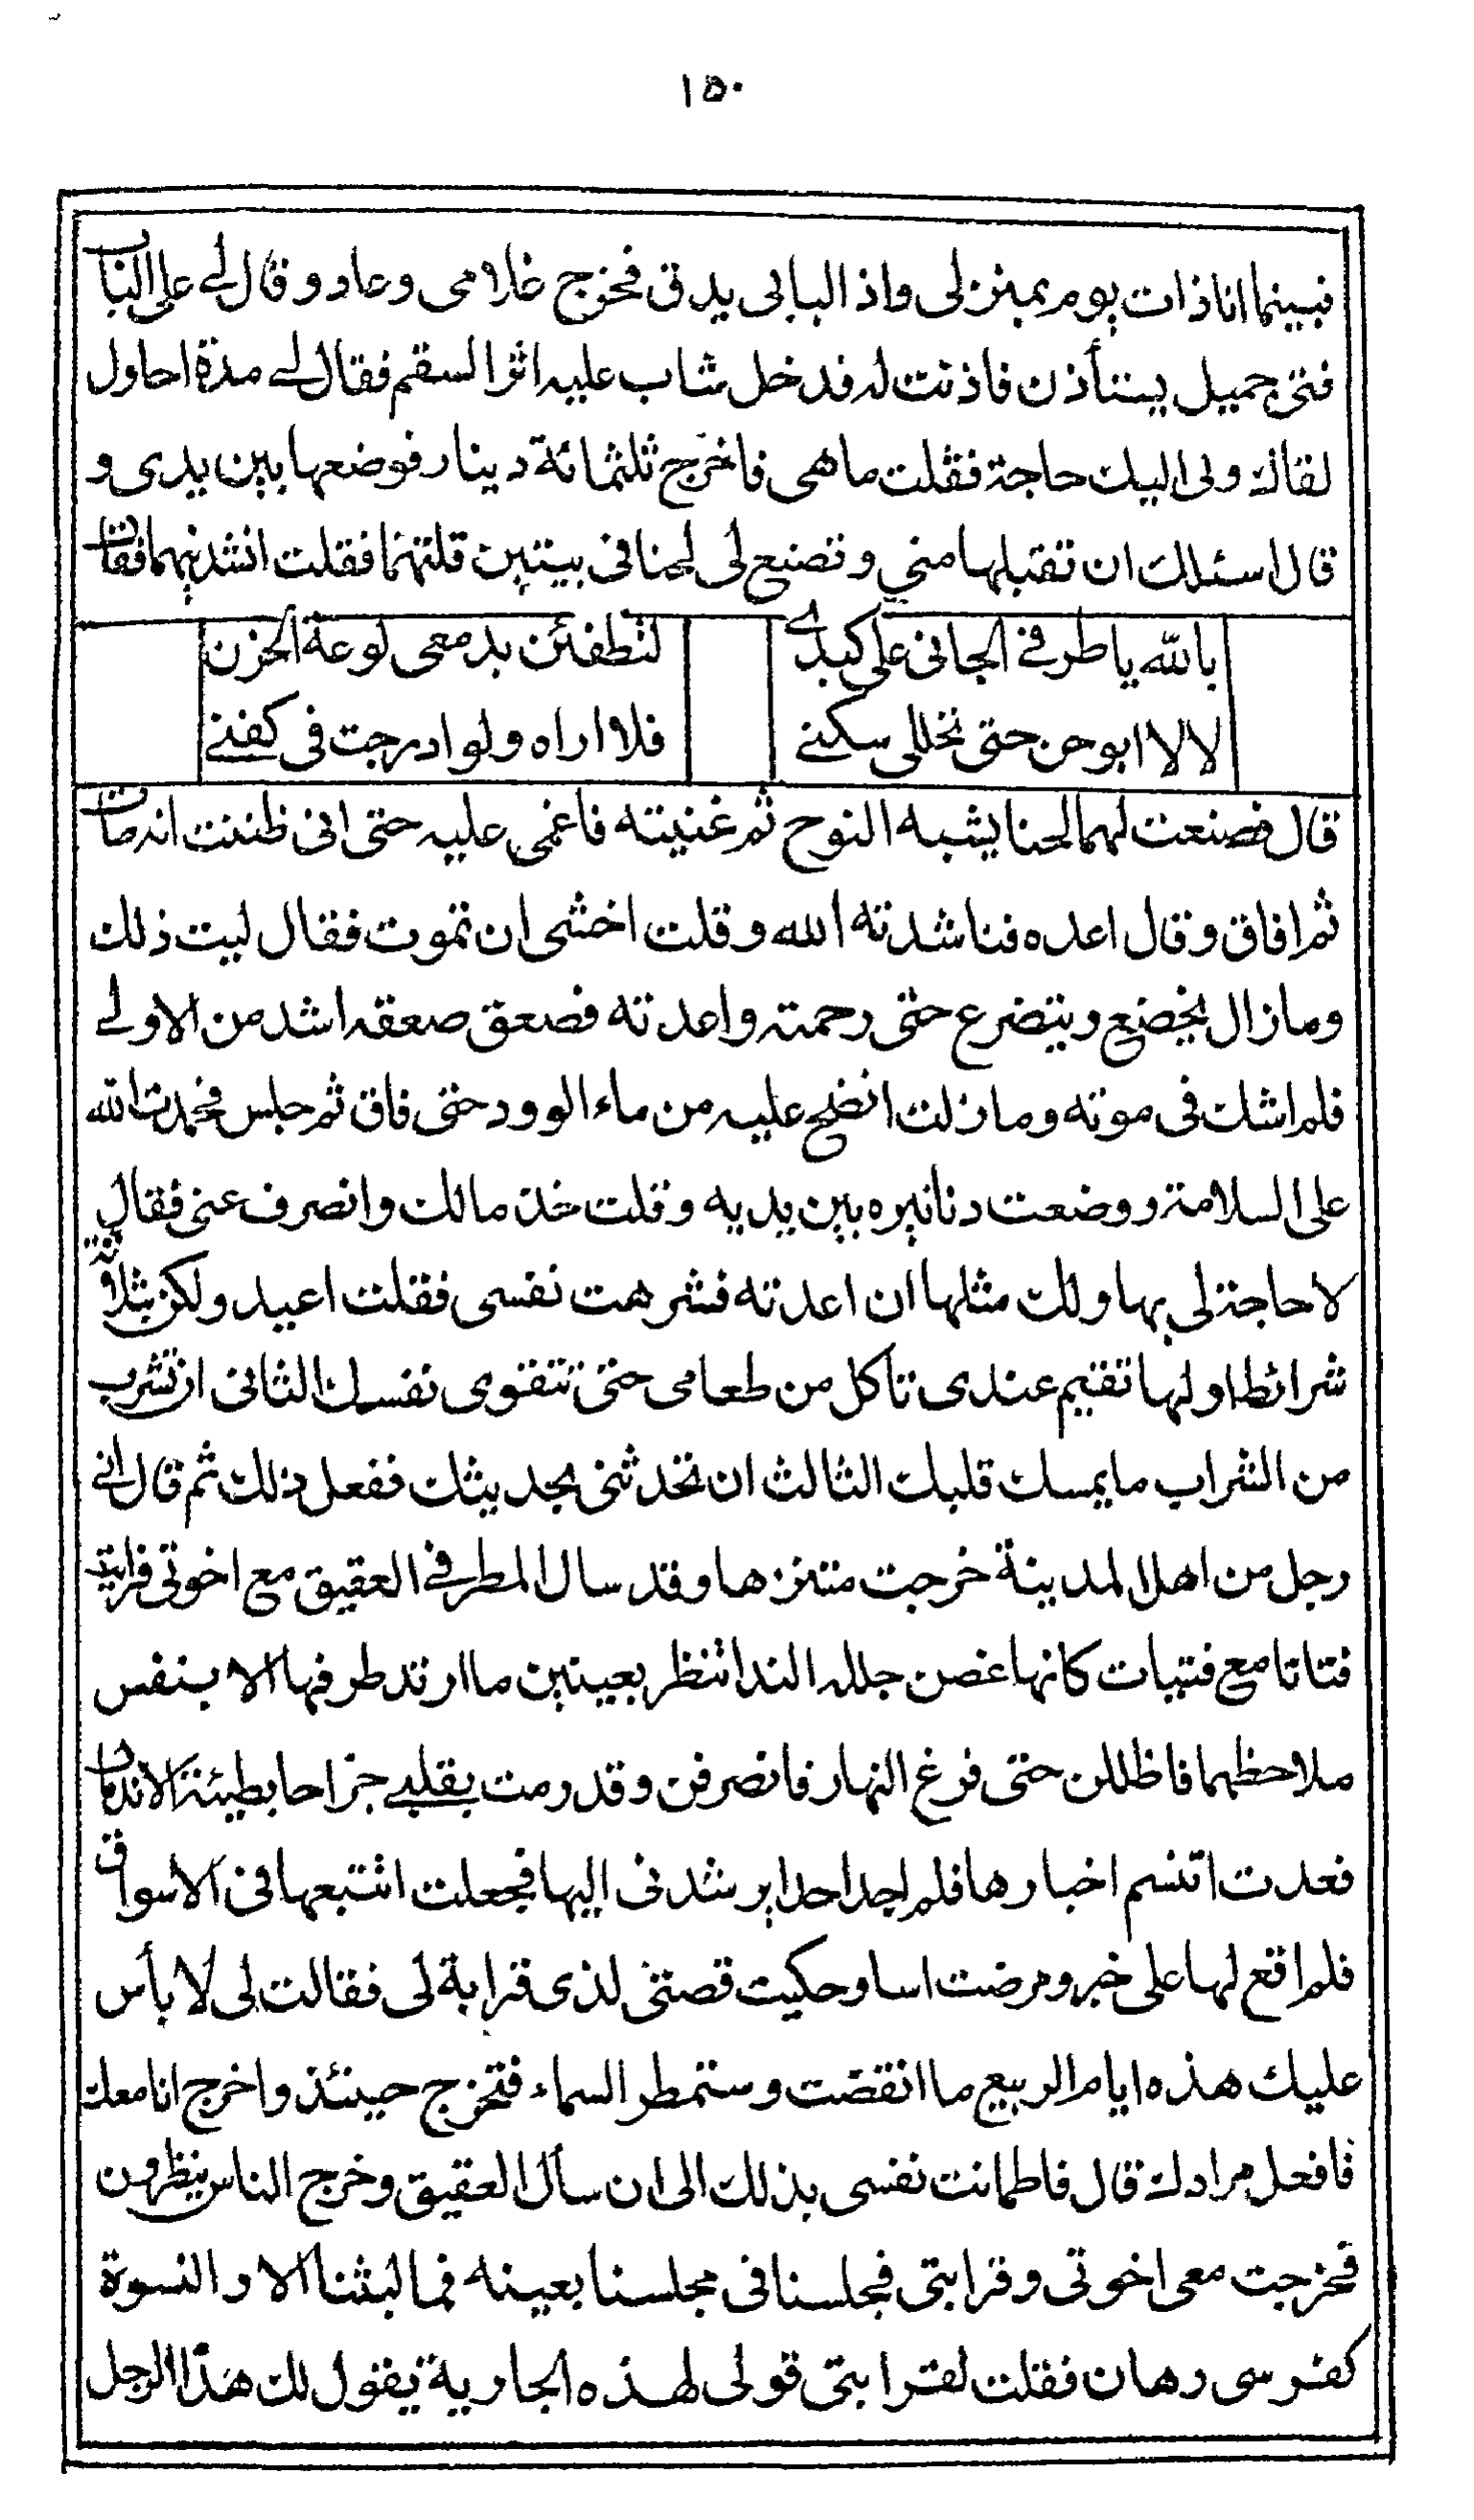 ١٥٠
فبينما انا ذات يوم بمنزلى واذا لبابى يدق فخرج غلامى وعاد وقال لى على الباب
فتى جميل يستأذن فاذنت له فدخل شاب عليه اثر السقم فقال لى مدة احاول
لقاك ولى اليك حاجة فقلت ماهى فاخرج ثلثمائة دينار فوضعها بين يدى و
قال اسئلك ان تقبلها منى وتصنع لى لحنا فى بيتين قلتهما فقلت انشدنيهما فقال
بالله ياطرفى الجانى على كبدى لتطفئن بدمعى لوعة الحزن
لا لا ابوحن حتى تخللى سكنى فلا اراه ولو ادرجت فى كفنى
قال فصنعت لهما لحنا يشبه النوح ثم غنيته فاغمى عليه حتى انى ظننت انه مات
ثم افاق وقال اعده فناشدته الله وقلت اخشى ان تموت فقال ليت ذلك
ومازال يخضع ويتضرع حتى رحمته واعدته فصعق صعقه اشد من الاولى
فلم اشك فى موته ومازلت انضح عليه من ماء الورد حتى فاق ثم جلس فحمدت الله
على السلامة ووضعت دنانيره بين يديه وقلت خذ مالك وانصرف عنى فقال
لا حاجة لى بها ولك مثلها ان اعدته فشرهت نفسى فقلت اعيد ولكن بثلاثة
شرائط اولها تقيم عندى تاكل من طعامى حتى تتقوى نفسك الثانى ان تشرب
من الشراب مايمسك قلبك الثالث ان تحدثنى بحديثك ففعل ذلك ثم قال انى
رجل من اهل المدينة خرجت متنزها وقد سال المطر فى العقيق مع اخوتى فرايت
فتاتا مع فتيات كانها غصن جلله الندا تنظر بعينين ما ارتد طرفها الا بنفس
ملاحظهما فاظللن حتى فرغ النهار فانصرفن وقد رمت بقلبى جراحا بطيئة الاندمال
فعدت اتنسم اخبارها فلم اجد احدا يرشدنى اليها فجعلت اتتبعها فى الاسواق
فلم اقع لها على خبر ومرضت اسا وحكيت قصتى لذى قرابة لى فقالت لى لا بأس
عليك هذه ايام الربيع ما انقضت وستمطر السماء فتخرج حينئذ واخرج انا معك
فافعل مرادك قال فاطمانت نفسى بذلك الى ان سأل العقيق وخرج الناس ينظرون
فخرجت معى اخوتى وقرابتى فجلسنا فى مجلسنا بعينه فما لبثنا الا والنسوة
كفرسى رهان فقلت لقرابتى قولى لهذه الجارية يقول لك هذا الرجل